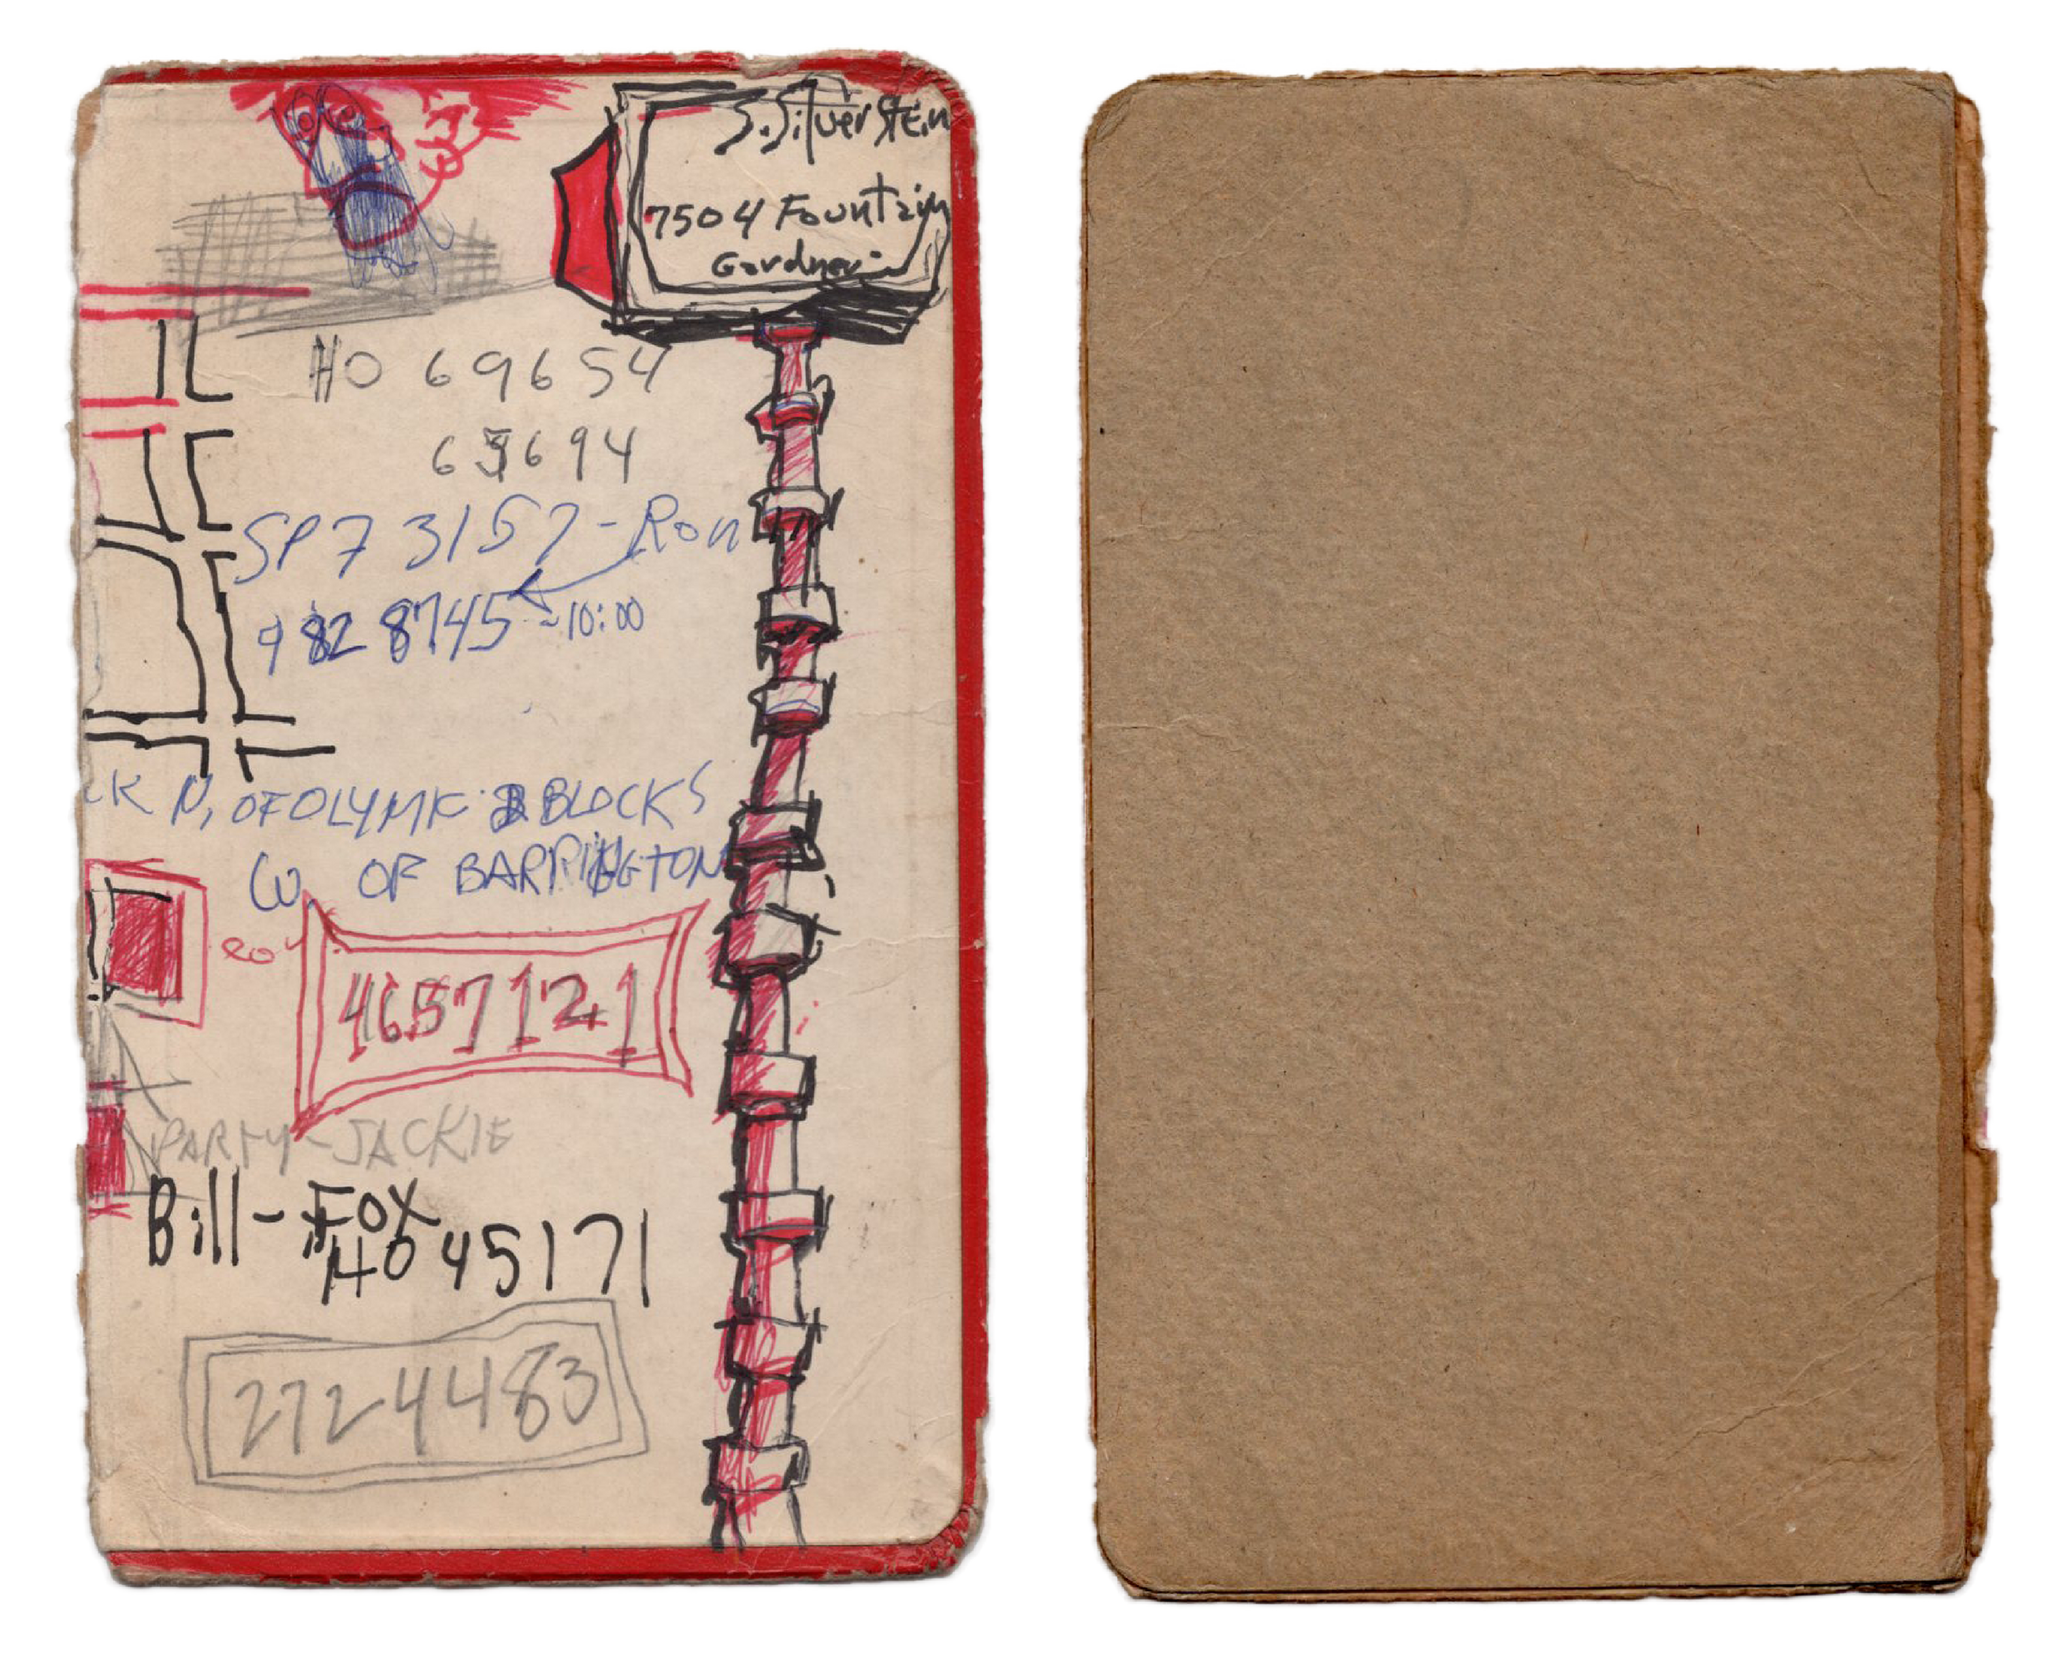 S. Silverstein
7504 Fountain
Gardner
HO 69654
63694
SP7 3157 - Ron
9828745 - 10:00
CK N. OF OLYMPIC 3 BLOCKS
W. OF BARRINGTON
4657121
PARTY - JACKIE
Bill - Fox
HO 45171
2724483